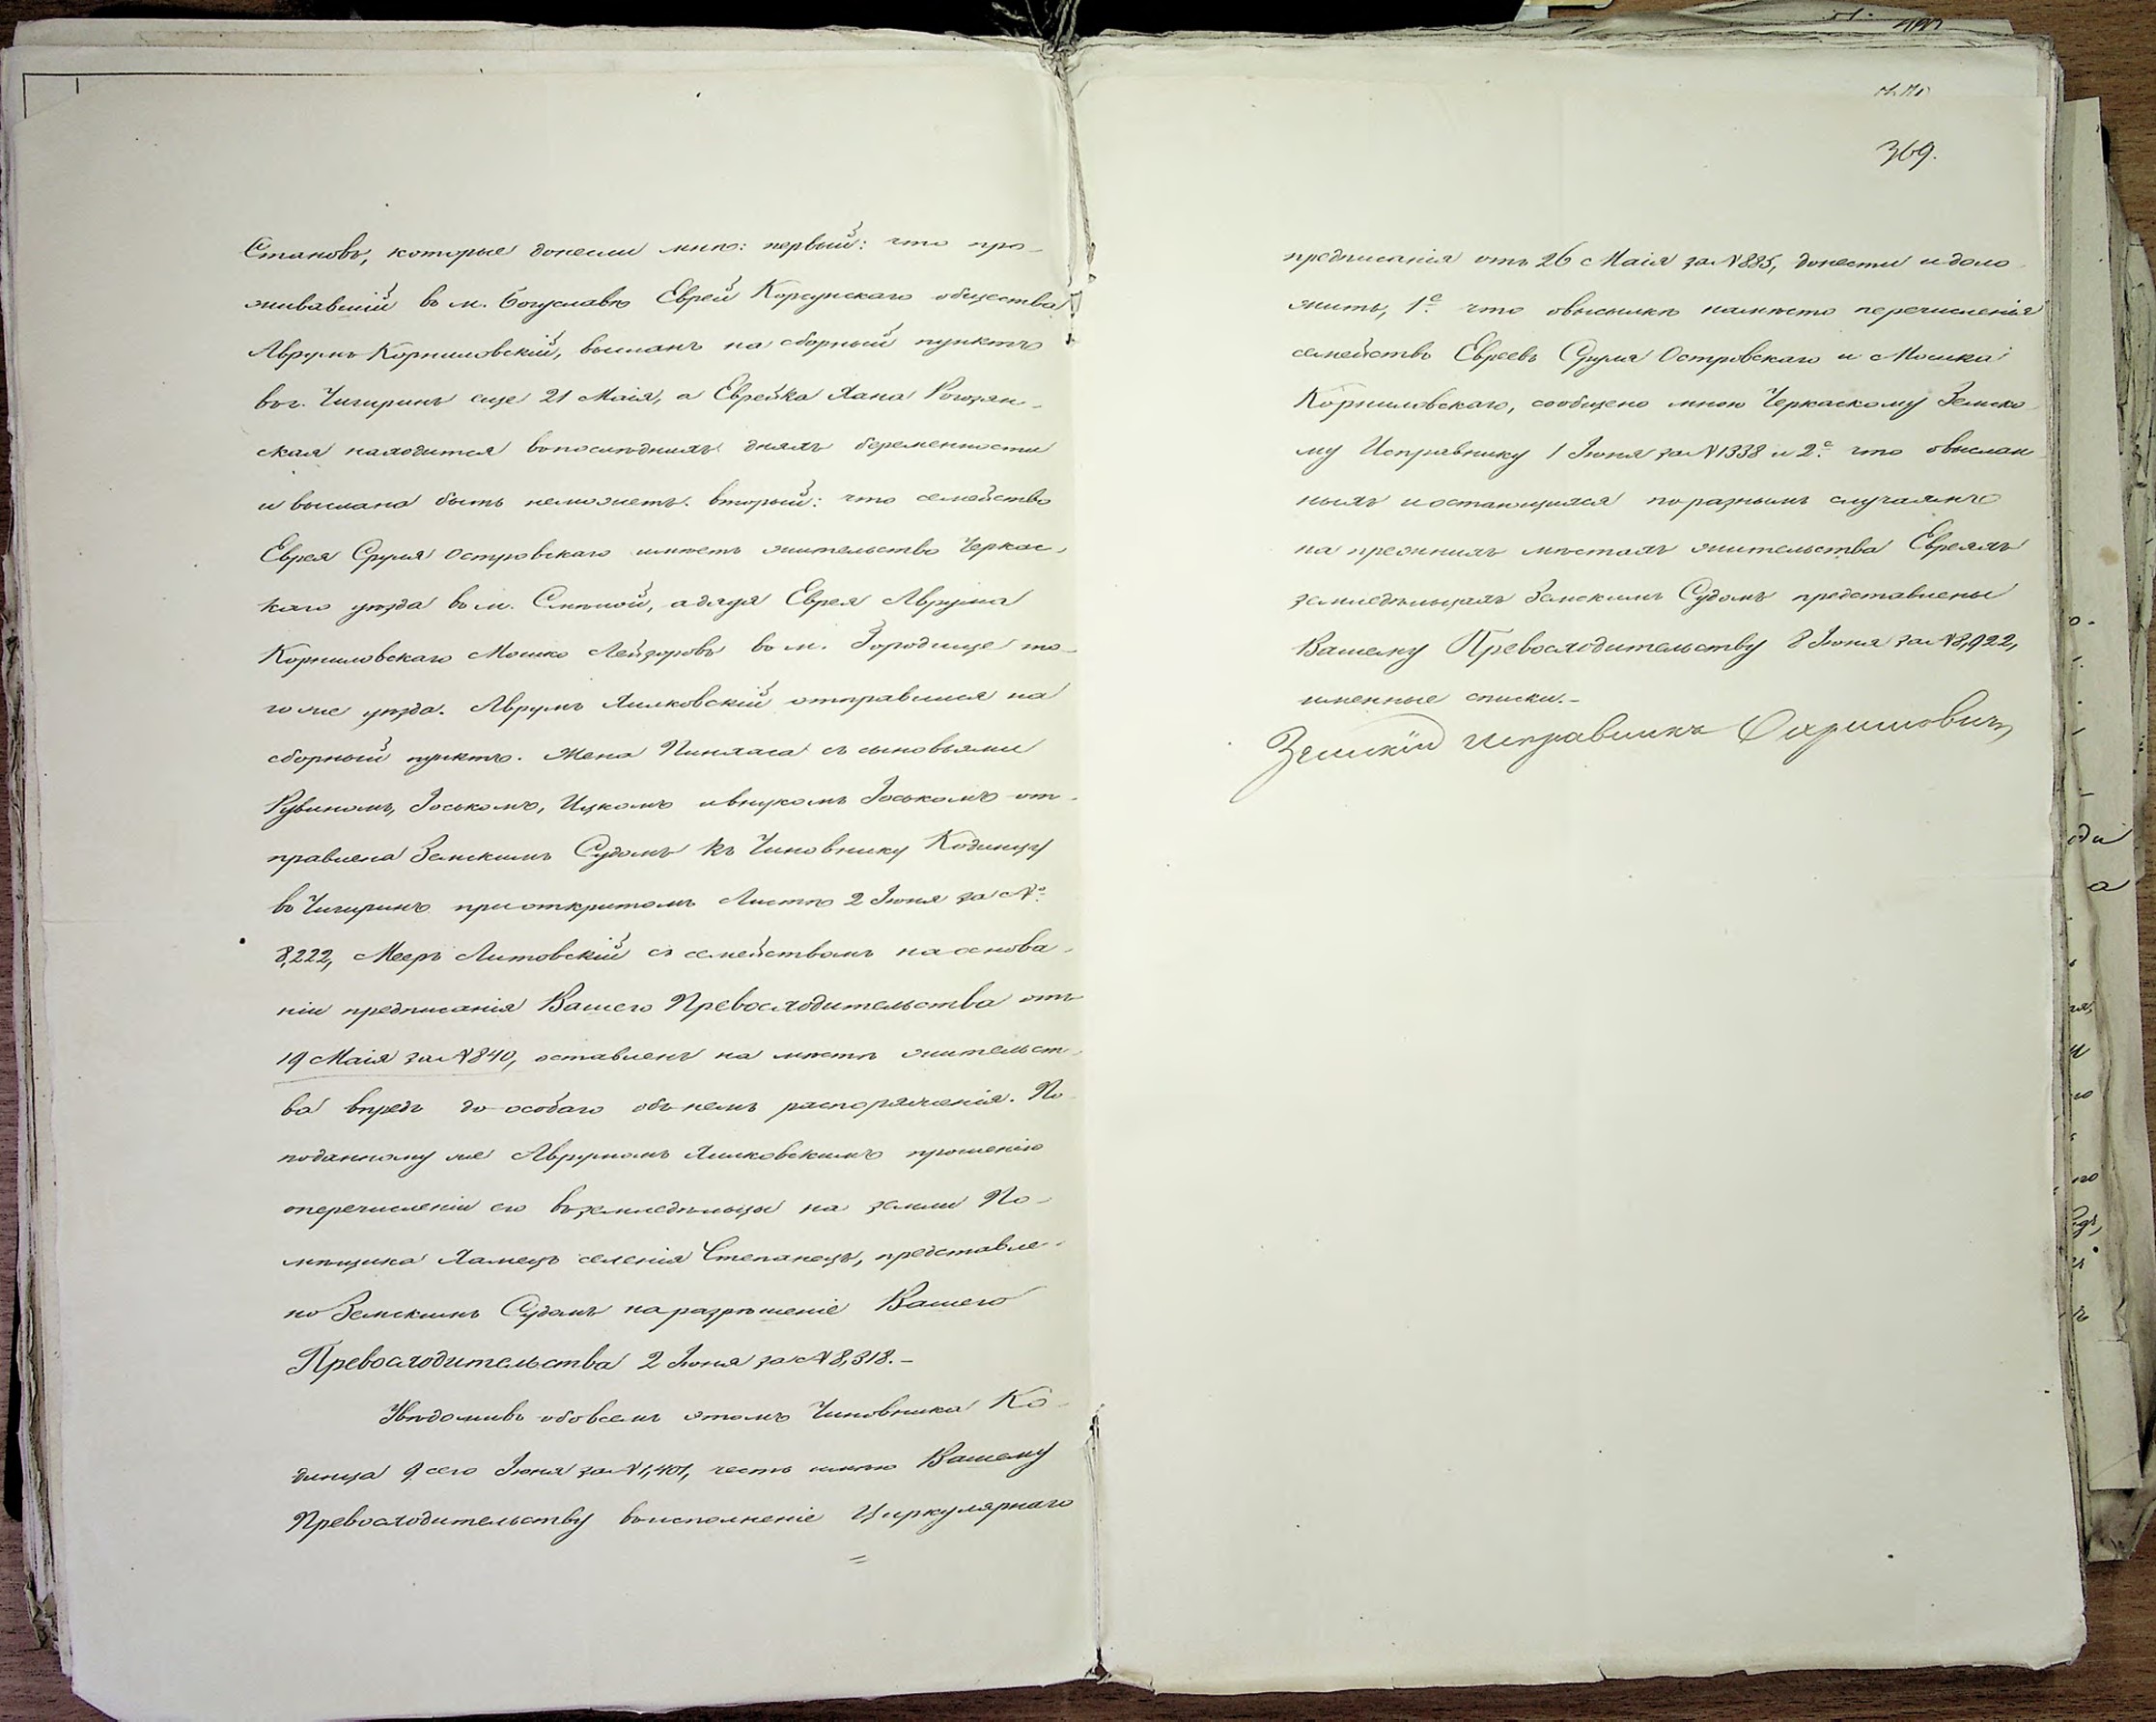 Становъ, которые донесли мнѣ: первый: что про-
живавшій въ м. Богуславѣ Еврей Корсунскаго общества
Аврумъ Корниловскій, высланъ на сборный пунктъ
въ г. Чигиринъ еще 21 Маія, а Еврейка Хана Рогозян-
ская находится въ последнихъ дняхъ беременности
и выслана быть неможетъ. вторый: что семейство
Еврея Сруля Островскаго имѣетъ жительство Черкас-
каго уѣзда въ м. Смѣлой, а дядя Еврея Аврума
Корниловскаго Мошко Лейзоровъ въ м. Городище то-
го же уѣзда. Аврумъ Хилковскій отправился на
сборный пунктъ. Жена Пинхаса съ сыновьями
Рувиномъ, Іоськомъ, Ицкомъ и внукомъ Іоськомъ от-
правлена Земскимъ Судомъ къ Чиновнику Кодинцу
въ Чигиринъ при открытомъ Листѣ 2 Іюня за №
8,222, Мееръ Литовскій съ семействомъ на основа-
ніи предписанія Вашего Превосходительства отъ
19 Маія за № 840, оставленъ на мѣстѣ жительст-
ва впредь до особаго объ немъ распоряженія. По
поданному же Аврумомъ Хилковскимъ прошенію
о перечисленіи его въ земледѣльцы на земли По-
мѣщика селенія Степанецъ, представле-
но Земскимъ Судомъ на разрѣшеніе Вашего
Превосходительства 2 Іюня за № 8,318.-
Увѣдомивъ обо всемъ этомъ Чиновника Ко-
динца 9 сего Іюня за № 1,401, честь имѣю Вашему
Превосходительству во исполненіе Циркулярнаго
=
369.
предписанія отъ 26 Маія за № 885, донести и доло-
жить, 1е что о высылкѣ на мѣсто перечисленія
семействъ Евреевъ Сруля Островскаго и Мошка
Корниловскаго, сообщено мною Черкаскому Земско-
му Исправнику 1 Іюня за № 1338 и 2е что о выслан-
ныхъ и остающихся по разнымъ случаямъ
на прежнихъ мѣстахъ жительства Евреяхъ
земледѣльцахъ Земскимъ Судомъ представлены
Вашему Превосходительству 8 Іюня за № 8,922,
именные списки.-
Земскій Исправникъ